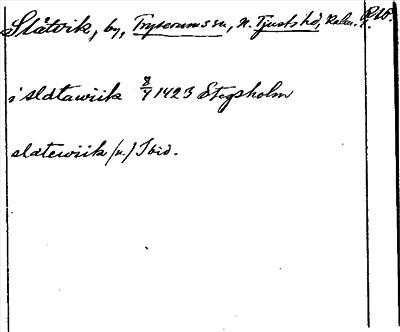 Slätvik, by, Tryserums sn, N. Tjusts hd, Kalm. l.
i slätawiik 8/7 1423 Stegsholm
slätewiik (u.) Ibid.